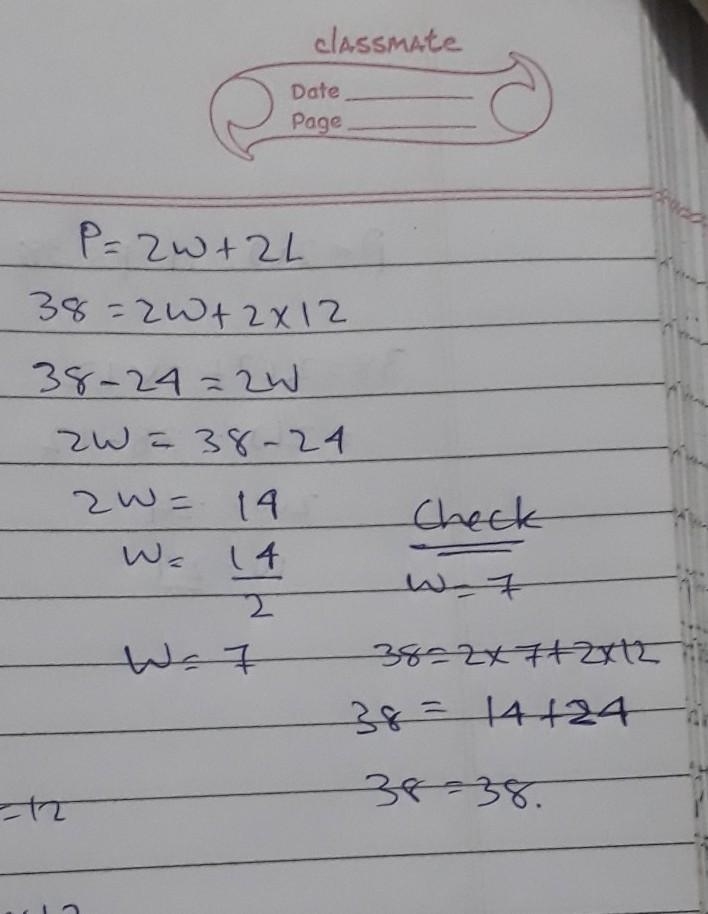 classmate
Date
Page
P = 2W + 2L
38 = 2W + 2 × 12
38 - 24 = 2W
2W = 38 - 24
2W = 14
W = 14/2
W = 7
Check
W = 7
38 = 2 × 7 + 2 × 12
38 = 14 + 24
38 = 38.
= 12